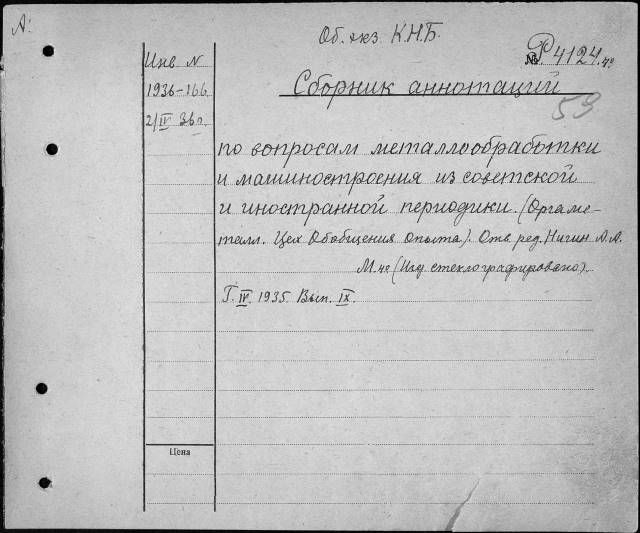 А.
Об. экз. К.Н.Б.
№ Р 4124.4°
Инв N
1936-166.
2/IV 36 г.
Сборник аннотаций
59
по вопросам металлообработки
и машиностроения из советской
и иностранной периодики. (Оргаме-
талл. Цех Обобщения Опыта). Отв. ред. Нигин А.А.
М. 4° (Изд стеклографировано).
Г. IV. 1935. Вып. IX.
Цена